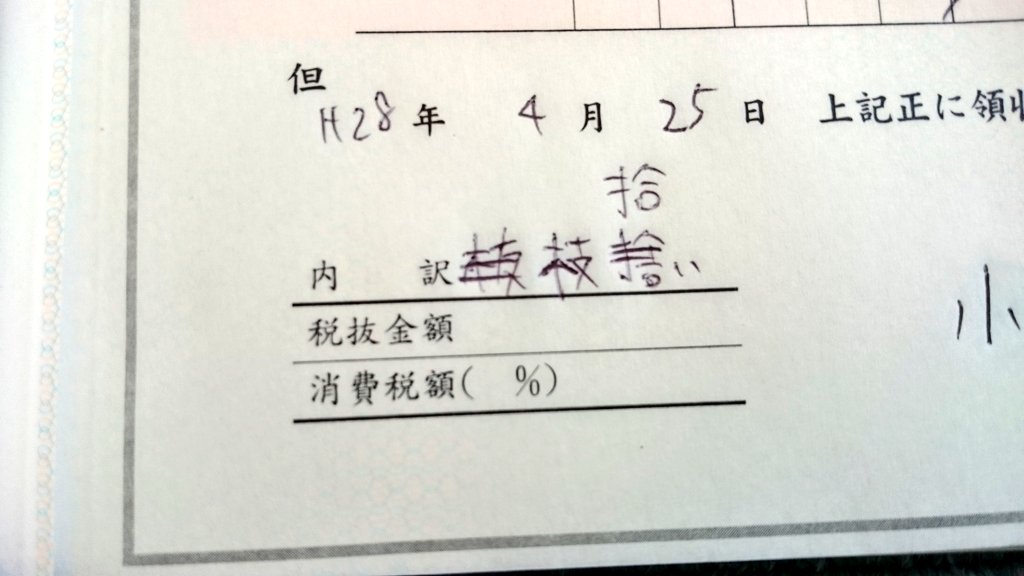 但
H28年 4月 25日 上記正に領収
拾
内 訳 枝 い
税抜金額
消費税額( %)
小